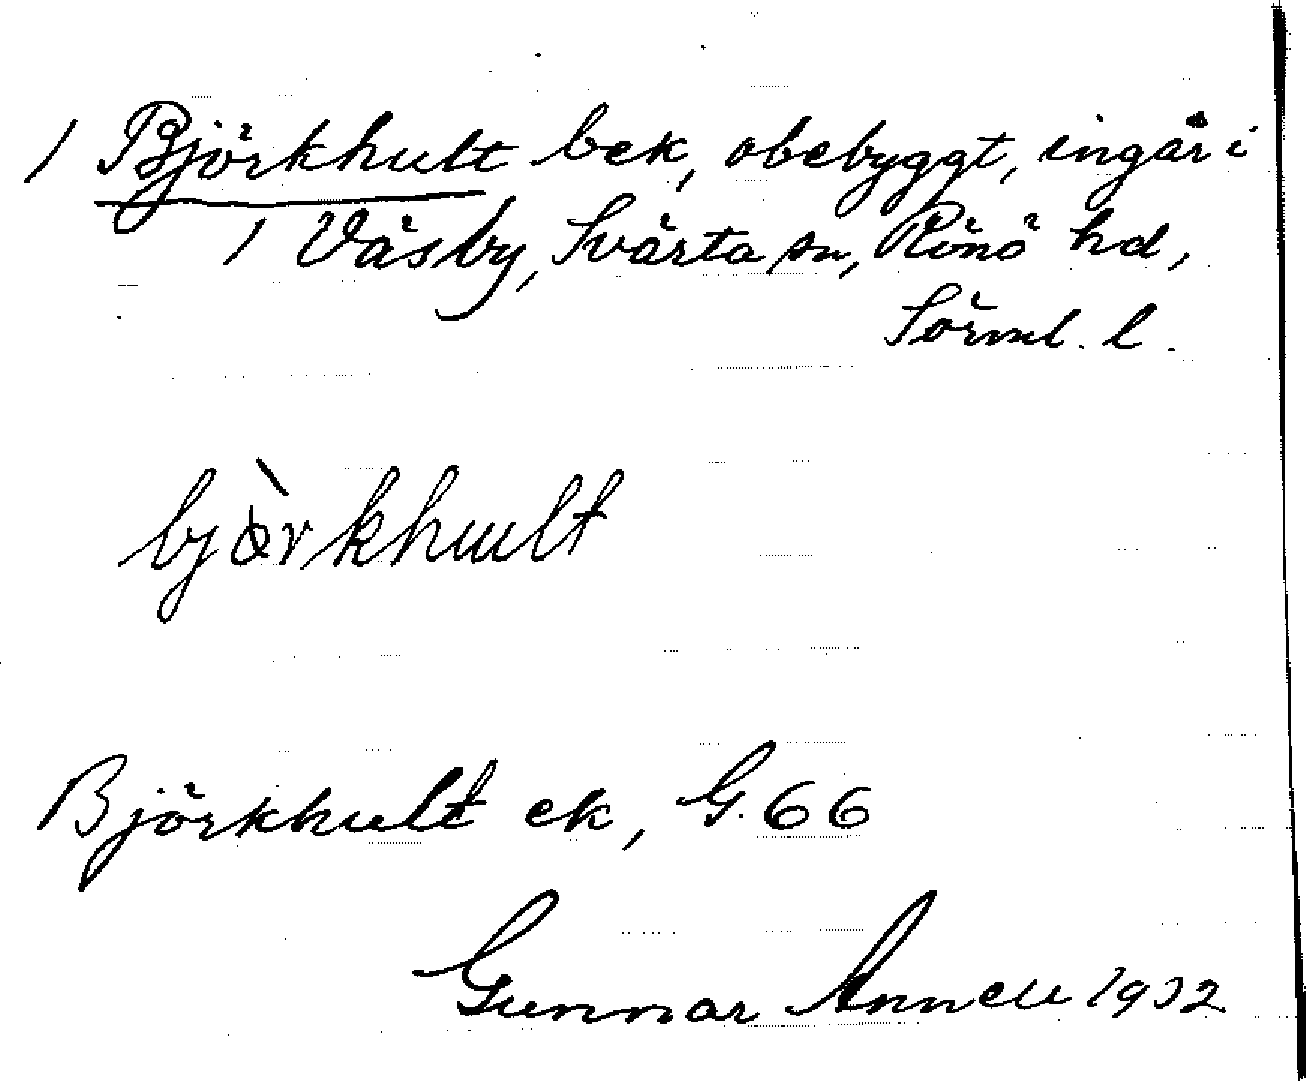 1 Björkhult bek, obebyggt, ingår i
1 Väsby, Svärta sn, Rönö hd,
Sörml. l.
bjòrkhult
Björkhult ek, G. 66
Gunnar Annell 1932